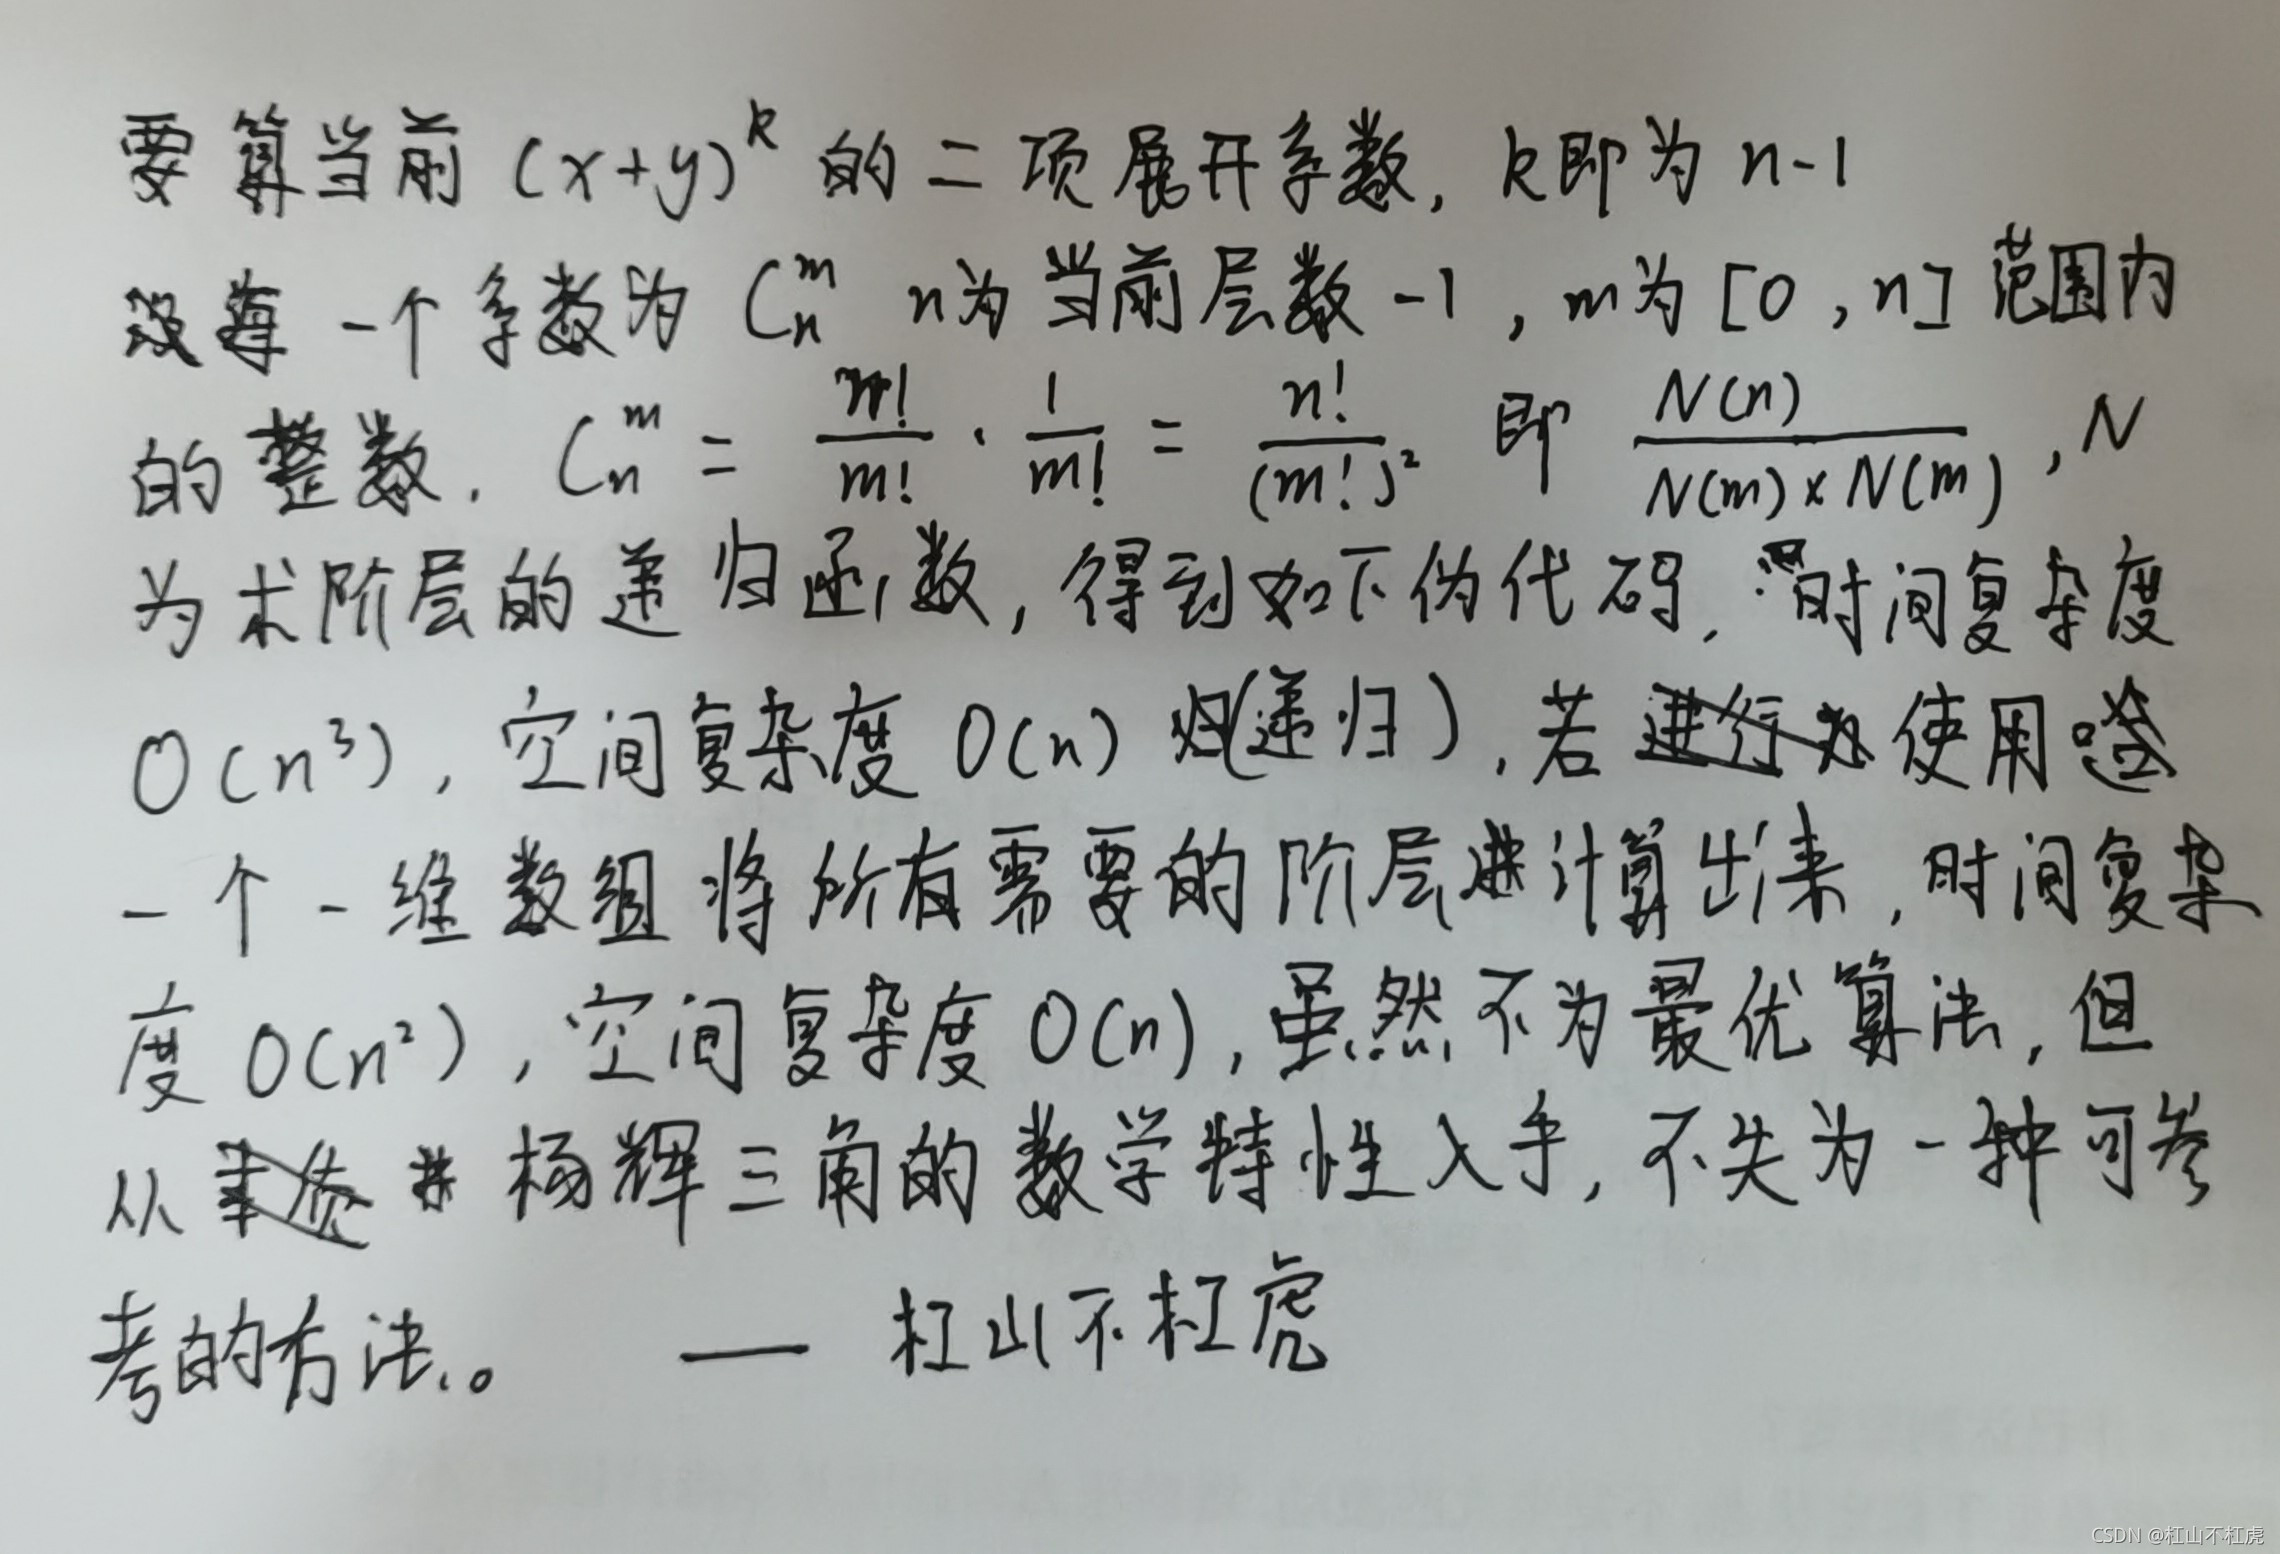 要算当前 (x+y)^k 的二项展开系数, k即为 n-1
一个系数为 C_n^m n为当前层数 -1 , m为 [0 , n] 范围内
的整数. C_n^m = n!/m! · 1/m! = n!/(m!)² 即 N(n)/(N(m)×N(m)) , N
为求阶层的递归函数, 得到如下伪代码, 时间复杂度
O(n³), 空间复杂度 O(n) (递归), 若 使用
一个一维数组将所有需要的阶层计算出来, 时间复杂
度 O(n²), 空间复杂度 O(n), 虽然不为最优算法, 但
从 杨辉三角的数学特性入手, 不失为一种可参
考的方法.。 —— 杠山不杠虎
CSDN @杠山不杠虎